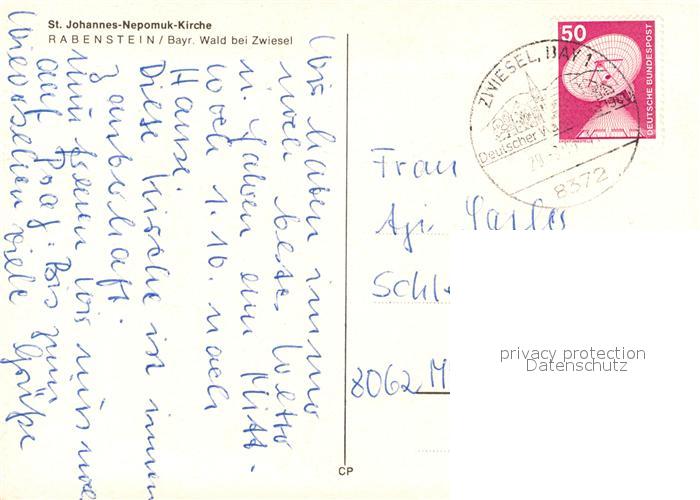 St. Johannes-Nepomuk-Kirche
RABENSTEIN / Bayr. Wald bei Zwiesel
Wir haben immer
noch bestes Wetter
u. fahren am Mitt-
woch 1. 10. nach
Hause.
Diese Kirche ist innen
zauberhaft.
nun freuen wir uns noch
auf Prag. Bis zum
Wiedersehen viele Grüße
50
DEUTSCHE BUNDESPOST
ZWIESEL, BAY 1
Deutscher
8372
Frau
Schl
8062 M
privacy protection
Datenschutz
CP